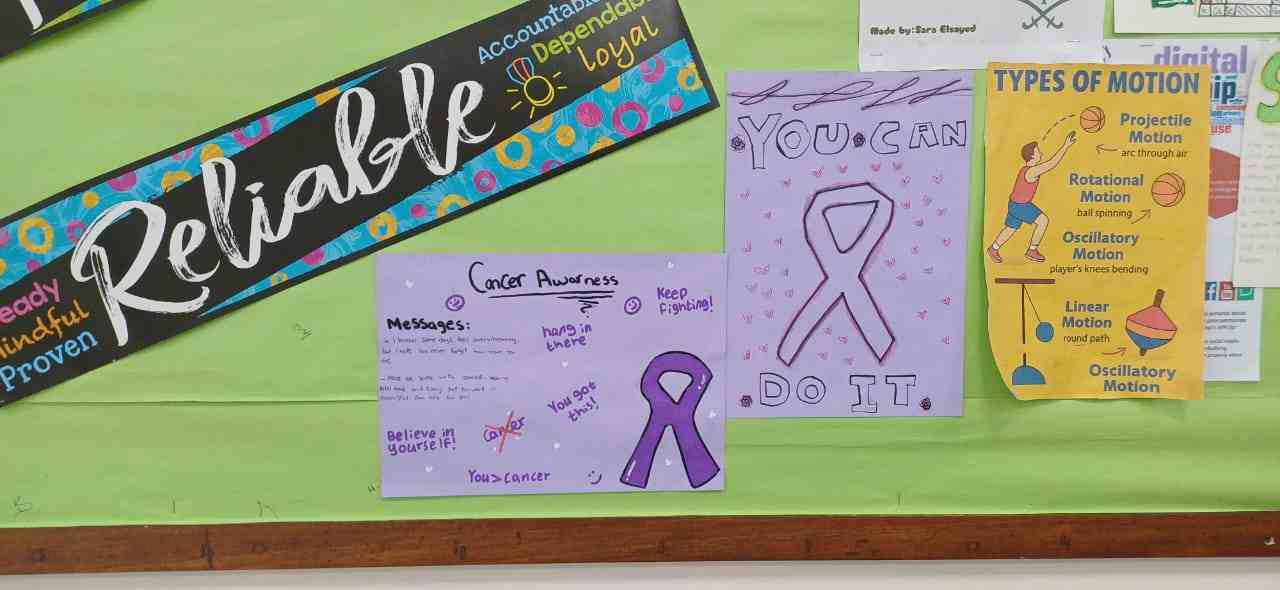 Accountable
Dependable
loyal
Reliable
eady
indful
Proven
Made by:Sara Elsayed
digital
ip
use
Cancer Awarness
Keep
fighting!
Messages:
hang in
there
You got
this!
Believe in
yourself!
Cancer
You>cancer
YOU CAN
DO IT.
TYPES OF MOTION
Projectile
Motion
arc through air
Rotational
Motion
ball spinning
Oscillatory
Motion
player's knees bending
Linear
Motion
round path
Oscillatory
Motion